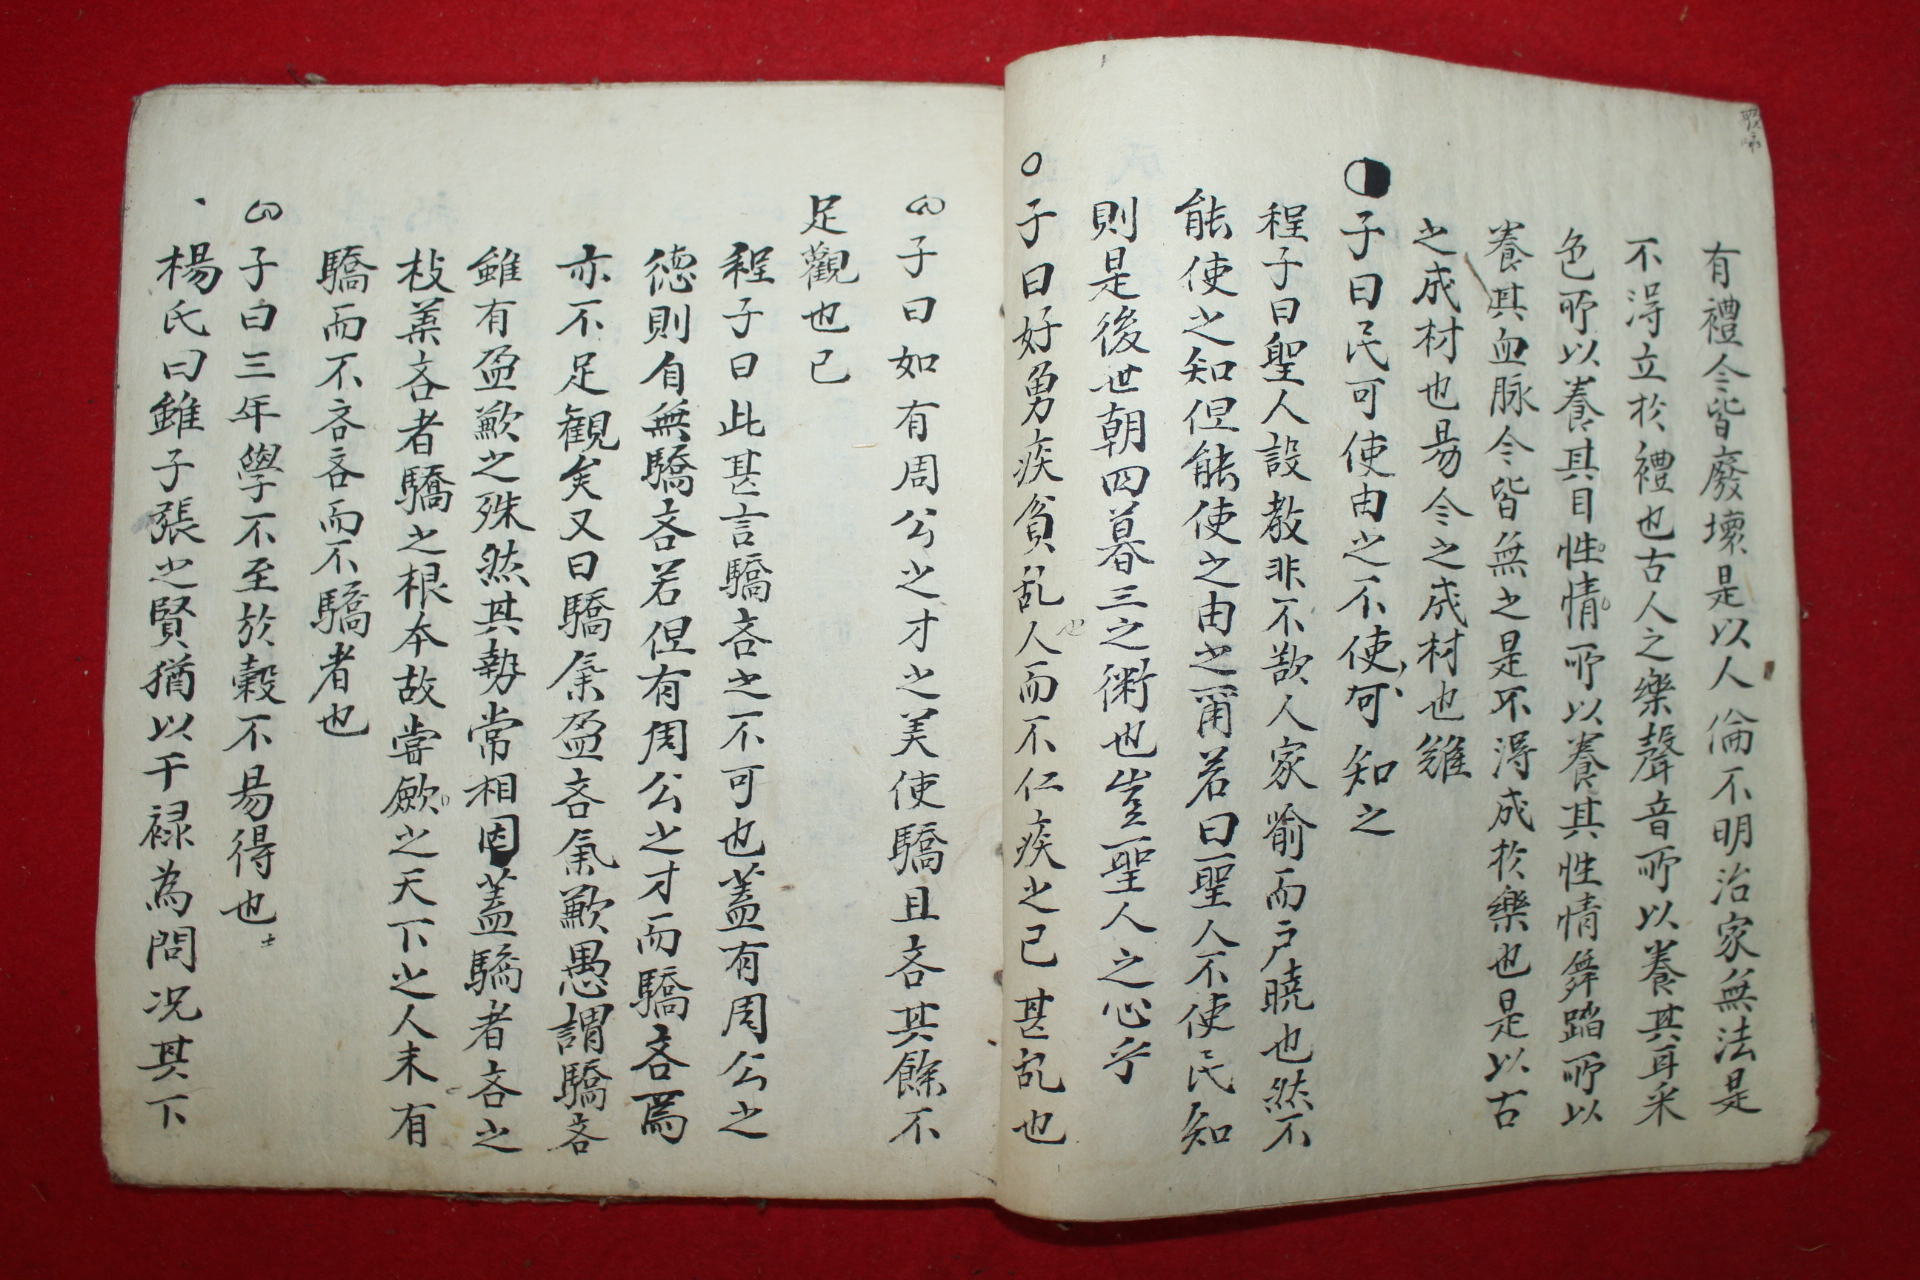 有禮今皆廢壞是以人倫不明治家無法是
不淂立於禮也古人之樂聲音所以養其耳采
色所以養其目性情所以養其性情舞蹈所以
養其血脉今皆無之是不淂成於樂也是以古
之成材也易今之成材也難
子曰民可使由之不使可知之
程子曰聖人設教非不欲人家喻而戶曉也然不
能使之知但能使之由之甫若曰聖人不使民知
則是後世朝四暮三之術也豈聖人之心乎
○子曰好勇疾貧乱人而不仁疾之已甚乱也
子曰如有周公之才之美使驕且吝其餘不
足觀也已
程子曰此甚言驕吝之不可也蓋有周公之
德則自無驕吝若但有周公之才而驕吝焉
亦不足觀矣又曰驕氣盈吝氣歉愚謂驕吝
雖有盈歉之殊然其勢常相因蓋驕者吝之
枝葉吝者驕之根本故嘗歛之天下之人未有
驕而不吝吝而不驕者也
子曰三年學不至於穀不易得也
楊氏曰雖子張之賢猶以干祿為問况其下